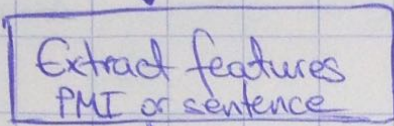 Extract features
PMI or sentence